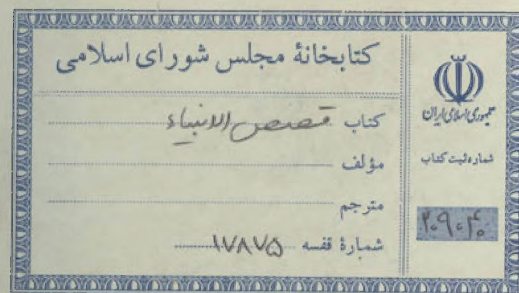 کتابخانهٔ مجلس شورای اسلامی
کتاب قصص الانبیاء
مؤلف
مترجم
شمارهٔ قفسه ۱۷۸۷۵
جمهوری اسلامی ایران
شماره ثبت کتاب
۲۰۹۰۴۰